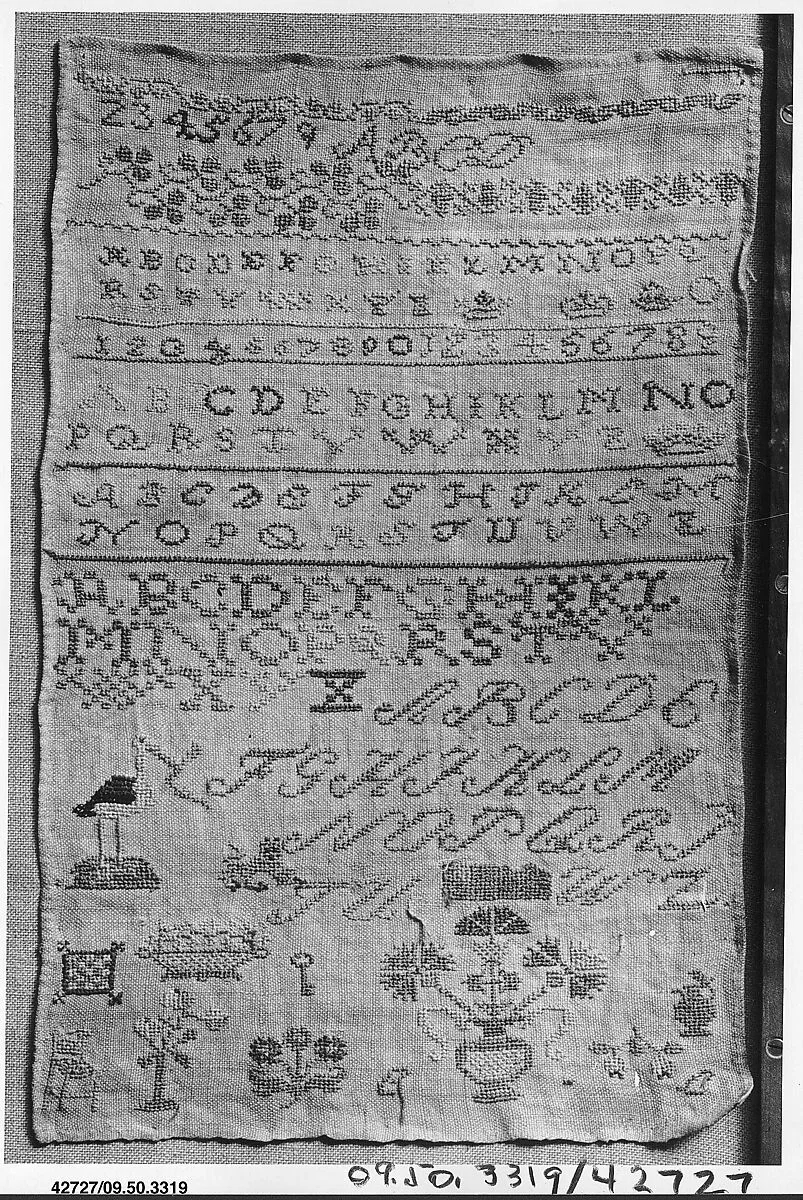 2 3 4 5 6 7 9 A B C D
A B C D E F G H I K L M N O P
R S T V W X Y Z
1 2 3 4 5 6 7 8 9 0 1 2 3 4 5 6 7 8
A B C D E F G H I K L M N O
P Q R S T V W X Y Z
A B C D E F G H I K L M
N O P Q R S T U V W Z
A B C D E F G H I K L
M N O P Q R S T V
W X Y Z A B C D E
F G H I K L M
N O P Q R S
42727/09.50.3319
09.50.3319/42727